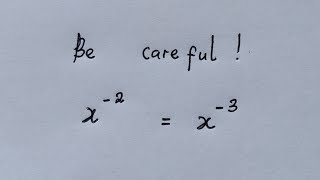 Be careful !
x⁻² = x⁻³